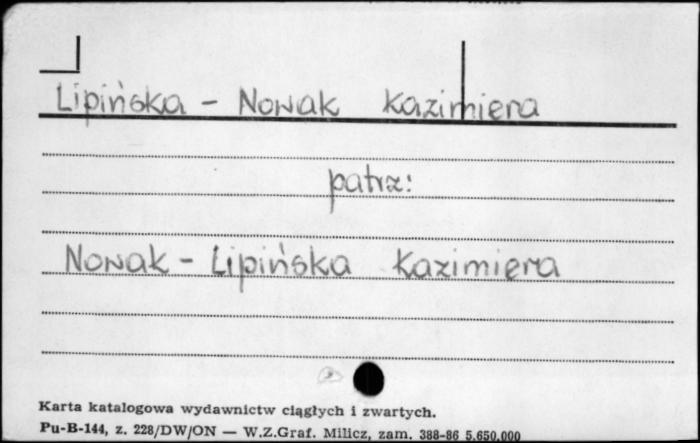 Lipińska - Nowak Kazimiera
patrz:
Nowak - Lipińska Kazimiera
Karta katalogowa wydawnictw ciągłych i zwartych.
Pu-B-144, z. 228/DW/ON — W.Z.Graf. Milicz, zam. 388-86 5.650.000